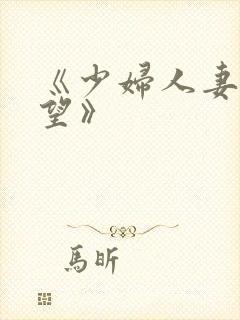 《少婦人妻
望》
馬昕